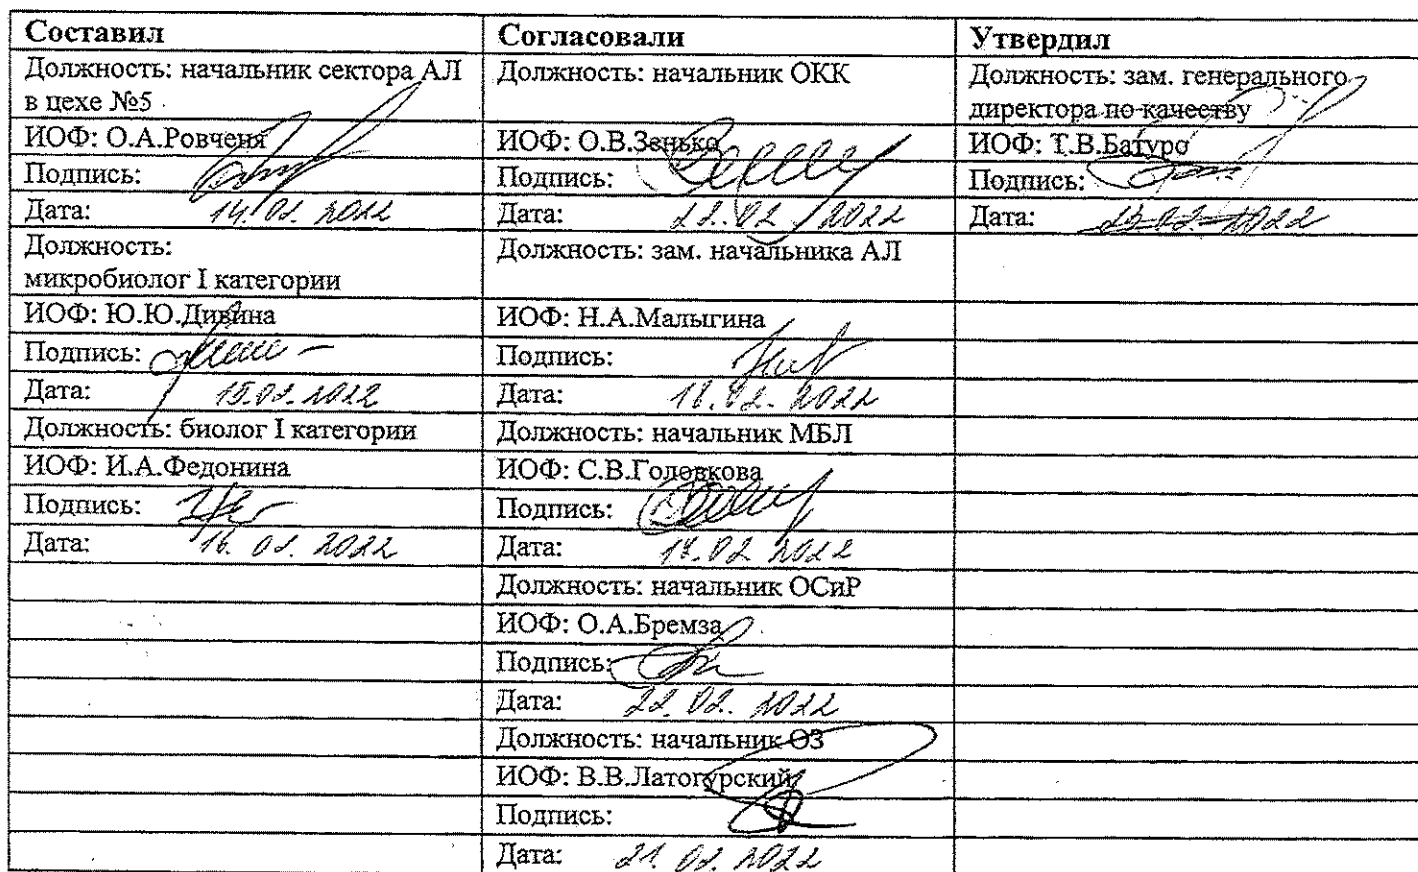 Составил
Согласовали
Утвердил
Должность: начальник сектора АЛ
в цехе №5
Должность: начальник ОКК
Должность: зам. генерального
директора по качеству
ИОФ: О.А.Ровченя
ИОФ: О.В.Зенько
ИОФ: Т.В.Батуро
Подпись:
Подпись:
Подпись:
Дата: 14.02.2022
Дата: 22.02.2022
Дата: 23.02.2022
Должность:
микробиолог I категории
Должность: зам. начальника АЛ
ИОФ: Ю.Ю.Дивина
ИОФ: Н.А.Малыгина
Подпись:
Подпись:
Дата: 15.02.2022
Дата: 18.02.2022
Должность: биолог I категории
Должность: начальник МБЛ
ИОФ: И.А.Федонина
ИОФ: С.В.Головкова
Подпись:
Подпись:
Дата: 16.02.2022
Дата: 2022
Должность: начальник ОСиР
ИОФ: О.А.Бремза
Подпись:
Дата: 22.02.2022
Должность: начальник ОЗ
ИОФ: В.В.Латогурский
Подпись:
Дата: 21.02.2022